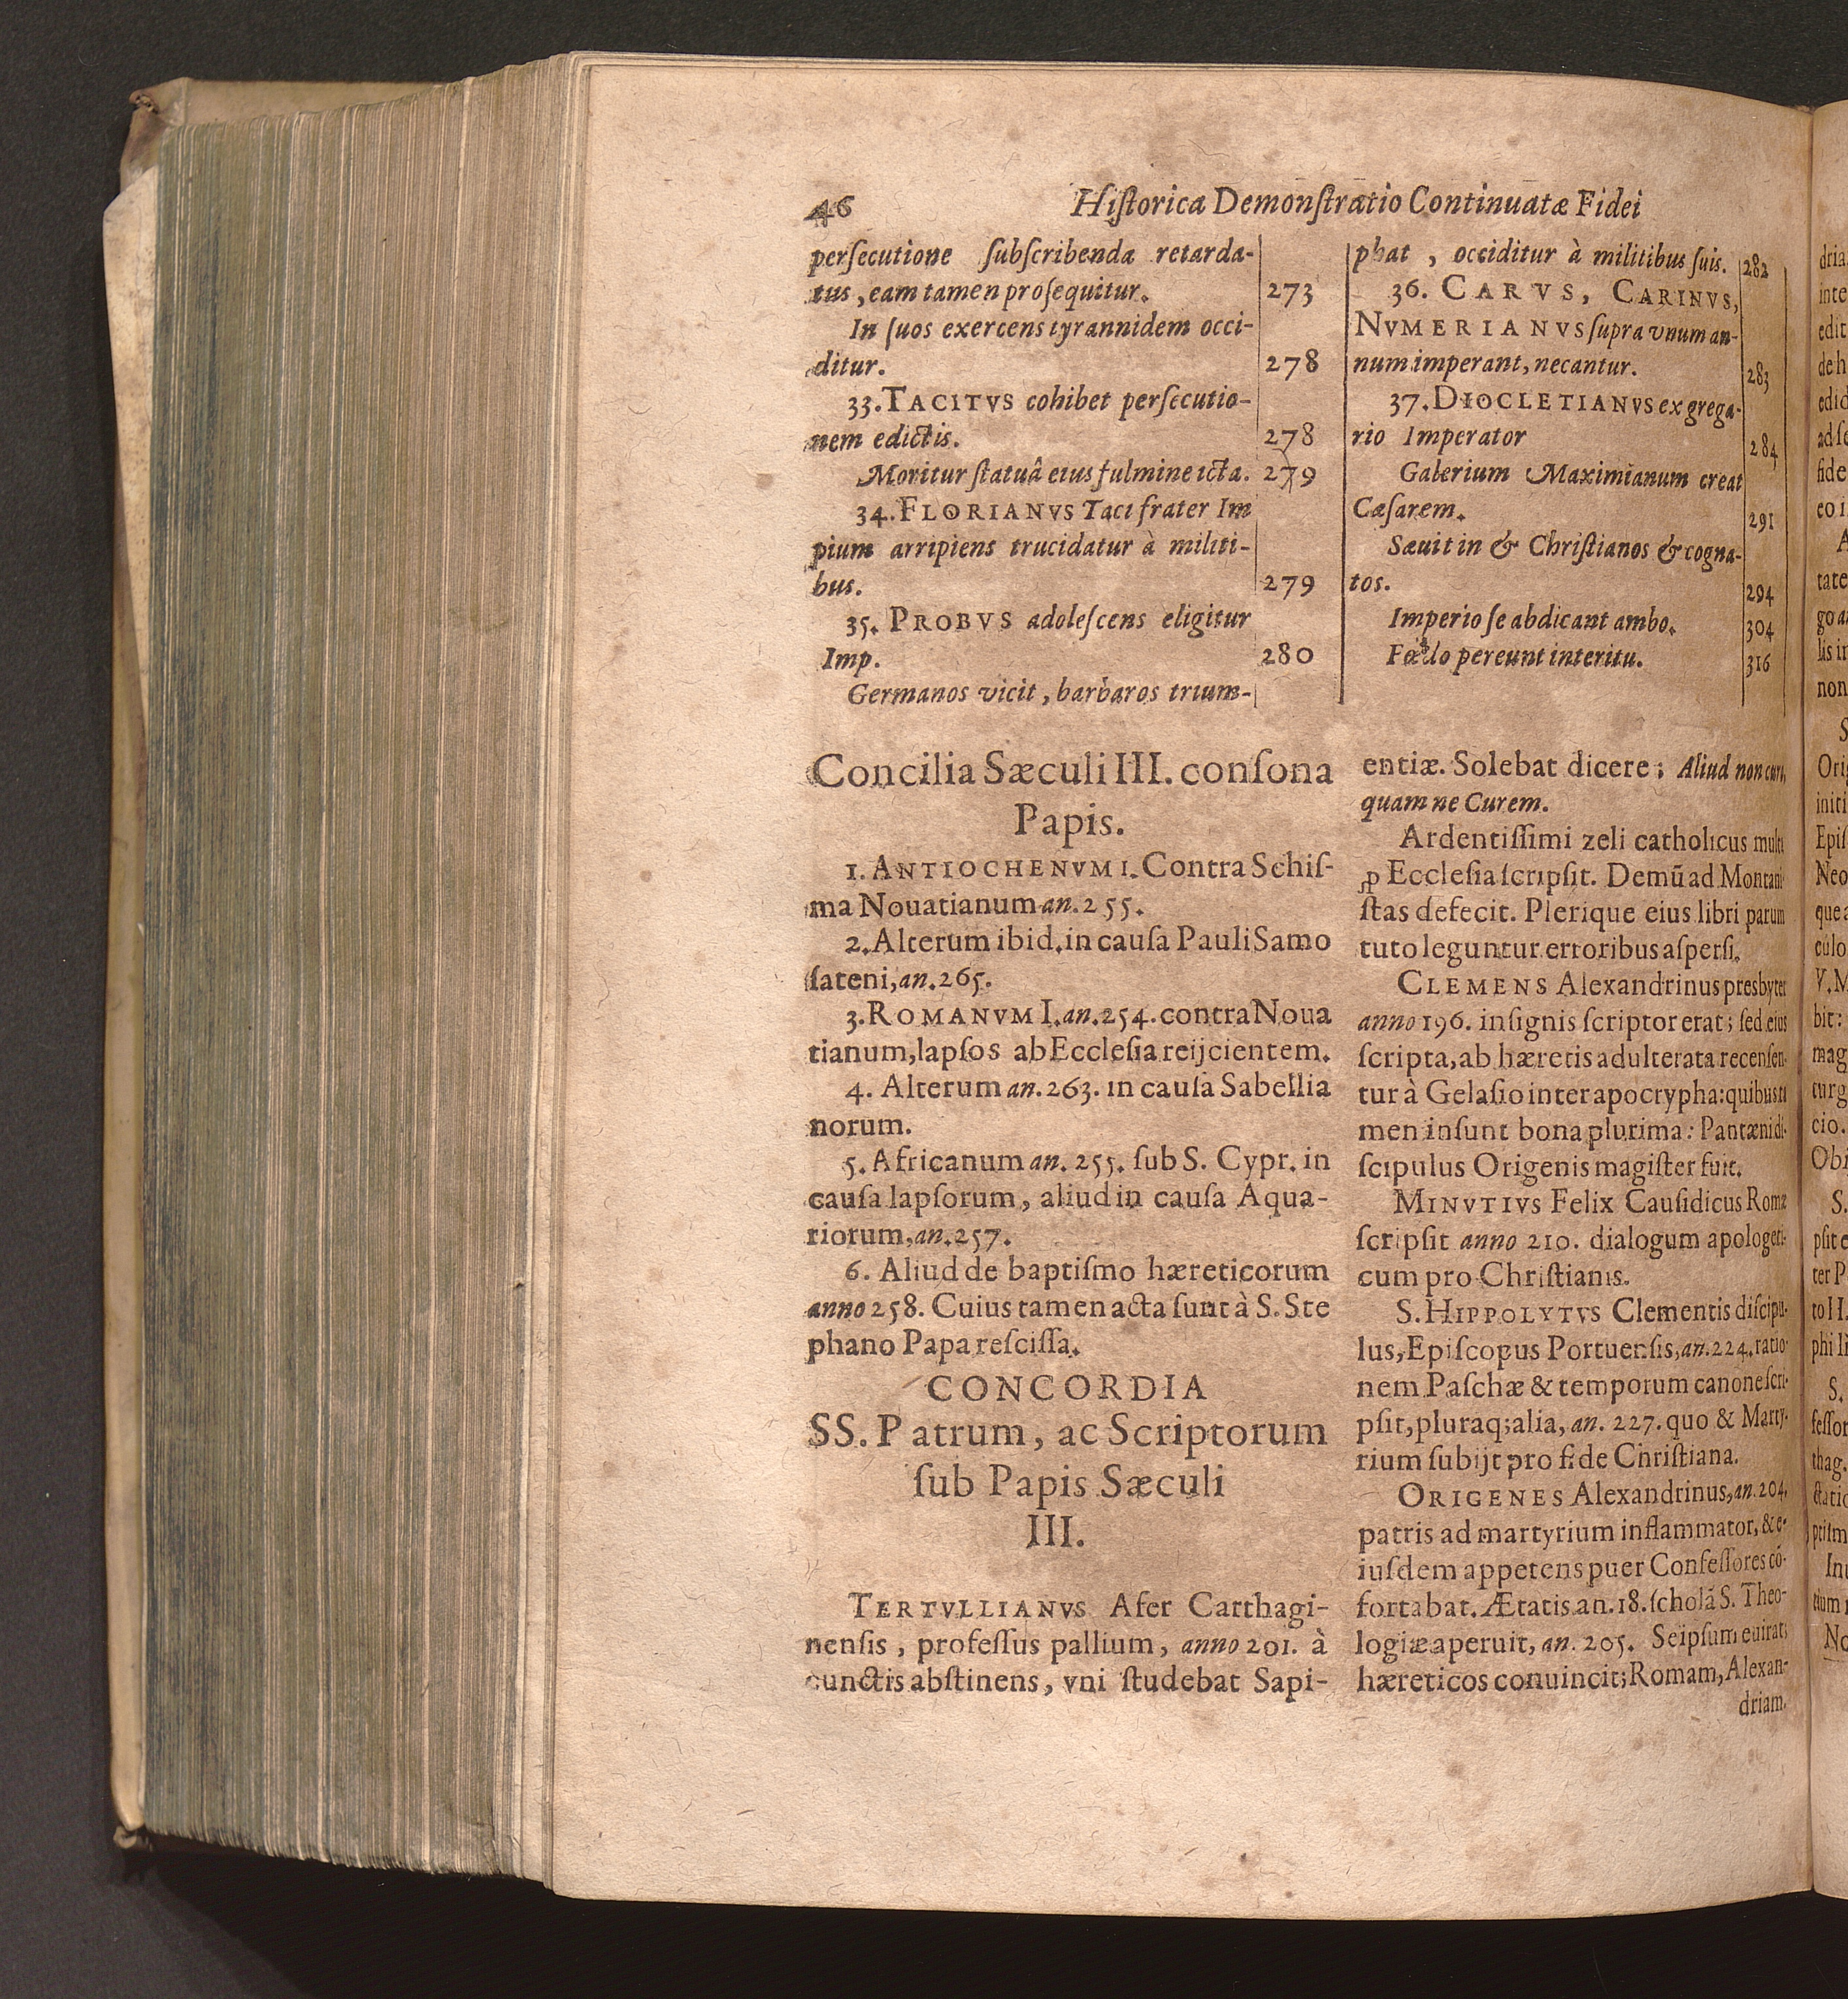 46 Hiſtorica Demonſtratio Continuatæ Fidei
perſecutione ſubſcribenda retarda-
tus, eam tamen proſequitur. 273
In ſuos exercens tyrannidem occi-
ditur. 278
33. TACITVS cohibet perſecutio-
nem edictis. 278
Moritur ſtatuâ eius fulmine icta. 279
34. FLORIANVS Taci frater Im
pium arripiens trucidatur à militi-
bus. 279
35. PROBVS adoleſcens eligitur
Imp. 280
Germanos vicit, barbaros trium-
phat, occiditur à militibus ſuis. 282
36. CARVS, CARINVS,
NVMERIANVS ſupra vnum an-
num imperant, necantur. 283
37. DIOCLETIANVS ex grega-
rio Imperator 284
Galerium Maximianum creat
Cæſarem. 291
Sæuit in & Chriſtianos & cogna-
tos. 294
Imperio ſe abdicant ambo. 304
Fœdo pereunt interitu. 316
Concilia Sæculi III. conſona
Papis.
1. ANTIOCHENVM I. Contra Schiſ-
ma Nouatianum an. 255.
2. Alterum ibid. in cauſa Pauli Samo
ſateni, an. 265.
3. ROMANVM I. an. 254. contra Noua
tianum, lapſos ab Eccleſia reijcientem.
4. Alterum an. 263. in cauſa Sabellia
norum.
5. Africanum an. 255. ſub S. Cypr. in
cauſa lapſorum, aliud in cauſa Aqua-
riorum, an. 257.
6. Aliud de baptiſmo hæreticorum
anno 258. Cuius tamen acta ſunt à S. Ste
phano Papa reſciſſa.
CONCORDIA
SS. Patrum, ac Scriptorum
ſub Papis Sæculi
III.
TERTVLLIANVS Afer Carthagi-
nenſis, profeſſus pallium, anno 201. à
cunctis abſtinens, vni ſtudebat Sapi-
entiæ. Solebat dicere; Aliud non curo,
quam ne Curem.
Ardentiſſimi zeli catholicus multa
ꝓ Eccleſia ſcripſit. Demũ ad Montani-
ſtas defecit. Plerique eius libri parum
tuto leguntur erroribus aſperſi.
CLEMENS Alexandrinus presbyter
anno 196. inſignis ſcriptor erat; ſed eius
ſcripta, ab hæretis adulterata recenſen-
tur à Gelaſio inter apocrypha: quibus ta
men inſunt bona plurima: Pantæni di-
ſcipulus Origenis magiſter fuit.
MINVTIVS Felix Cauſidicus Romæ
ſcripſit anno 210. dialogum apologeti-
cum pro Chriſtianis.
S. HIPPOLYTVS Clementis diſcipu-
lus, Epiſcopus Portuenſis, an. 224. ratio-
nem Paſchæ & temporum canone ſcri-
pſit, pluraq; alia, an. 227. quo & Marty-
rium ſubijt pro fide Chriſtiana.
ORIGENES Alexandrinus, an. 204.
patris ad martyrium inflammator, & e-
iuſdem appetens puer Confeſſores cō-
fortabat. Ætatis an. 18. ſcholã S. Theo-
logiæ aperuit, an. 205. Seipſum euirat;
hæreticos conuincit; Romam, Alexan-
driam.